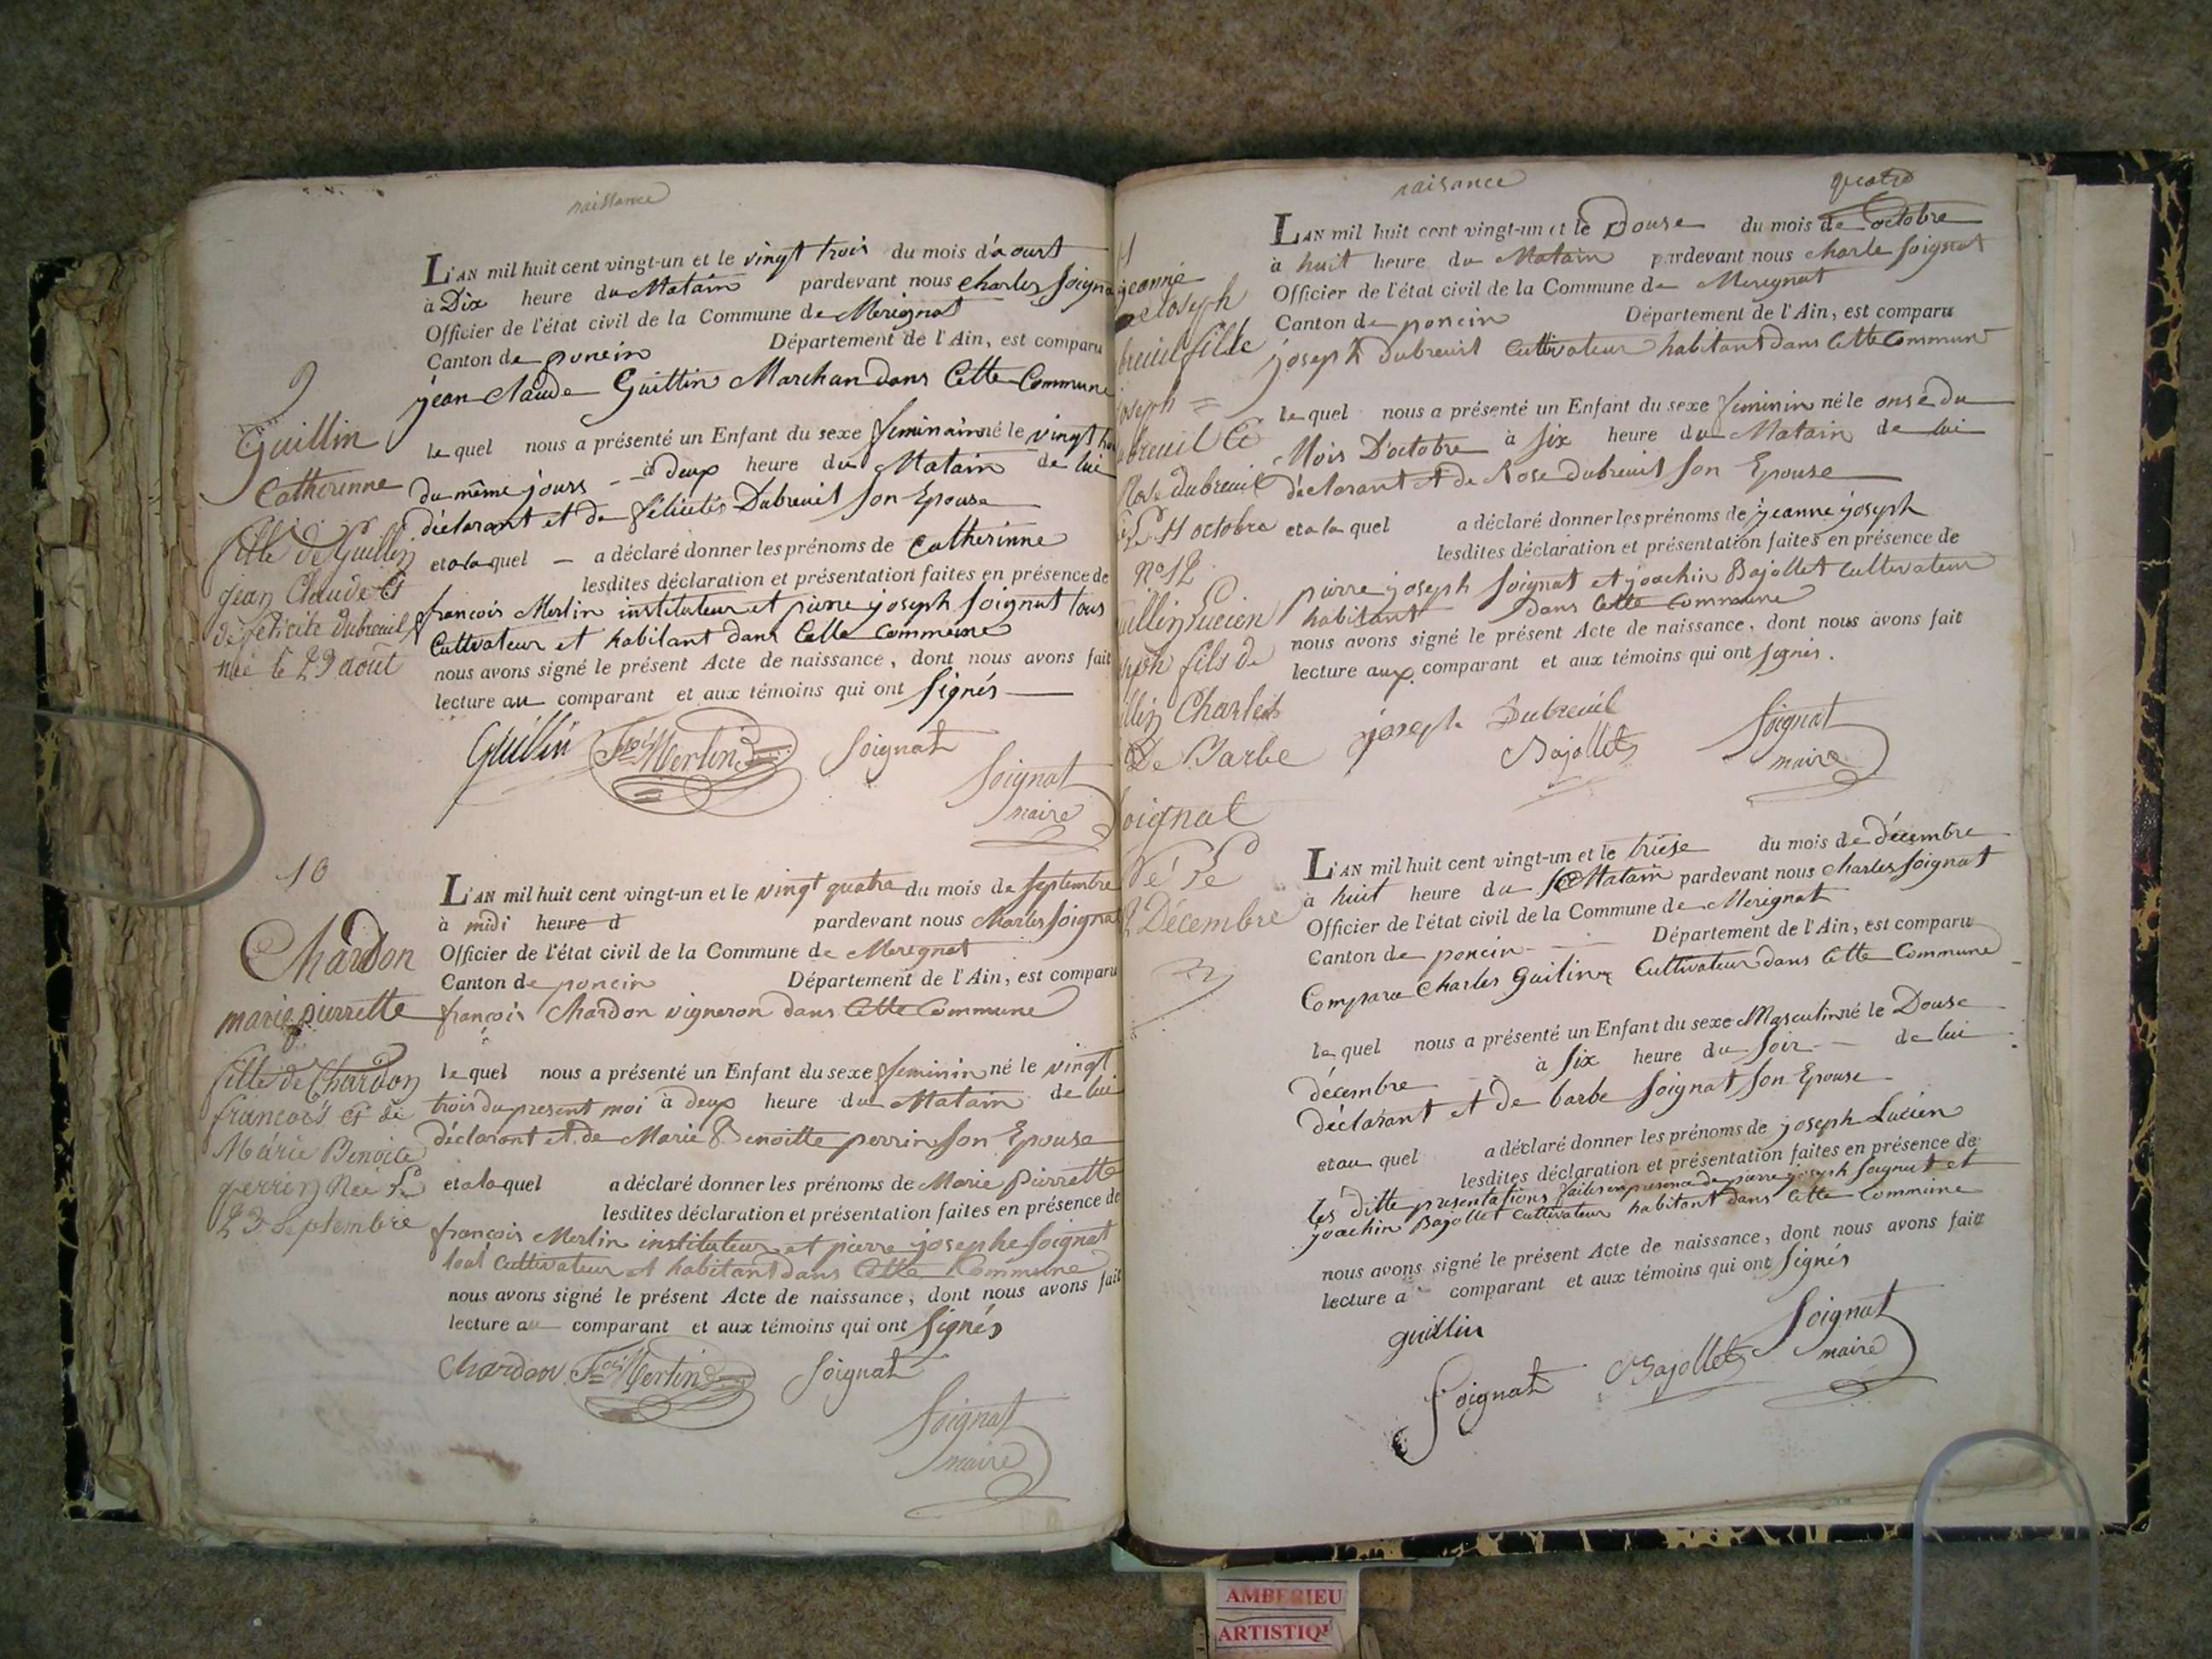 naissance
9
Guillin
Catherinne
fille de Guillin
jean Claude Et
de félicité dubreuil
née le 23 août
L'AN mil huit cent vingt-un et le vingt trois du mois d'aoust
à Dix heure du Matain pardevant nous Charles Soigna
Officier de l'état civil de la Commune de Merignat
Canton de poncin Département de l'Ain, est comparu
jean Claude Guillin Marchan dans Cette Commune
le quel nous a présenté un Enfant du sexe feminain né le vingt
du même jours - à deux heure du Matain de lui
déclarant et de félicités Dubreuil son Epouse
et a la quel - a déclaré donner les prénoms de Catherinne
lesdites déclaration et présentation faites en présence de
françois Merlin instituteur et pierre joseph Soignat tous
Cultivateur et habitant dans Cette Commune
nous avons signé le présent Acte de naissance, dont nous avons fait
lecture au comparant et aux témoins qui ont Signés
Guillin Fçois Merlin Soignat
Soignat
maire
10
Chardon
marie pierrette
fille de Chardon
francois et de
Marie Benoite
perrin Née Le
23 Septembre
L'AN mil huit cent vingt-un et le vingt quatre du mois de Septembre
à midi heure d pardevant nous Charles Soignat
Officier de l'état civil de la Commune de Merignat
Canton de poncin Département de l'Ain, est comparu
françois Chardon vigneron dans Cette Commune
le quel nous a présenté un Enfant du sexe feminin né le vingt
trois du present moi à deux heure du Matain de lui
déclarant et de Marie Benoitte perrin son Epouse
et a la quel a déclaré donner les prénoms de Marie Pierrette
lesdites déclaration et présentation faites en présence de
françois Merlin instituteur et pierre josephe Soignat
tout Cultivateur et habitant dans Cette Commune
nous avons signé le présent Acte de naissance, dont nous avons fait
lecture au comparant et aux témoins qui ont Signés
Chardon Fçois Merlin Soignat
Soignat
maire
naisance
quatre
11
jeanne
joseph
breuil fille
joseph =
breuil Et
Rose dubreuil
Le 11 octobre
L'AN mil huit cent vingt-un et le Douse du mois de octobre
à huit heure du Matain pardevant nous Charle Soignat
Officier de l'état civil de la Commune de Merignat
Canton de poncin Département de l'Ain, est comparu
joseph Dubreuil Cultivateur habitant dans Cette Commune
le quel nous a présenté un Enfant du sexe feminin né le onse du
Mois D'octobre à six heure du Matain de lui
déclarant et de Rose dubreuil son Epouse
et a la quel a déclaré donner les prénoms de jeanne joseph
lesdites déclaration et présentation faites en présence de
pierre joseph Soignat et joachin Bajollet Cultivateur
habitant dans Cette Commune
nous avons signé le présent Acte de naissance, dont nous avons fait
lecture aux comparant et aux témoins qui ont signés.
joseph Dubreuil Soignat
Bajollet maire
No 12
illin Lucien
seph fils de
illin Charles
De Barbe
Soignat
Né Le
12 Décembre
L'AN mil huit cent vingt-un et le treise du mois de décembre
à huit heure du Matain pardevant nous Charles Soignat
Officier de l'état civil de la Commune de Merignat
Canton de poncin Département de l'Ain, est comparu
Comparu Charles Guilin Cultivateur dans Cette Commune
le quel nous a présenté un Enfant du sexe Masculin né le Douse
décembre à six heure du soir de lui
déclarant et de barbe Soignat son Epouse
et au quel a déclaré donner les prénoms de joseph Lucien
lesdites déclaration et présentation faites en présence de
les ditte presentations faites en presence de pierre joseph Soignat et
joachin Bajollet Cultivateur habitant dans Cette Commune
nous avons signé le présent Acte de naissance, dont nous avons fait
lecture a comparant et aux témoins qui ont signés
guillin Soignat
Soignat Bajollet maire
AMBERIEU
ARTISTIQ